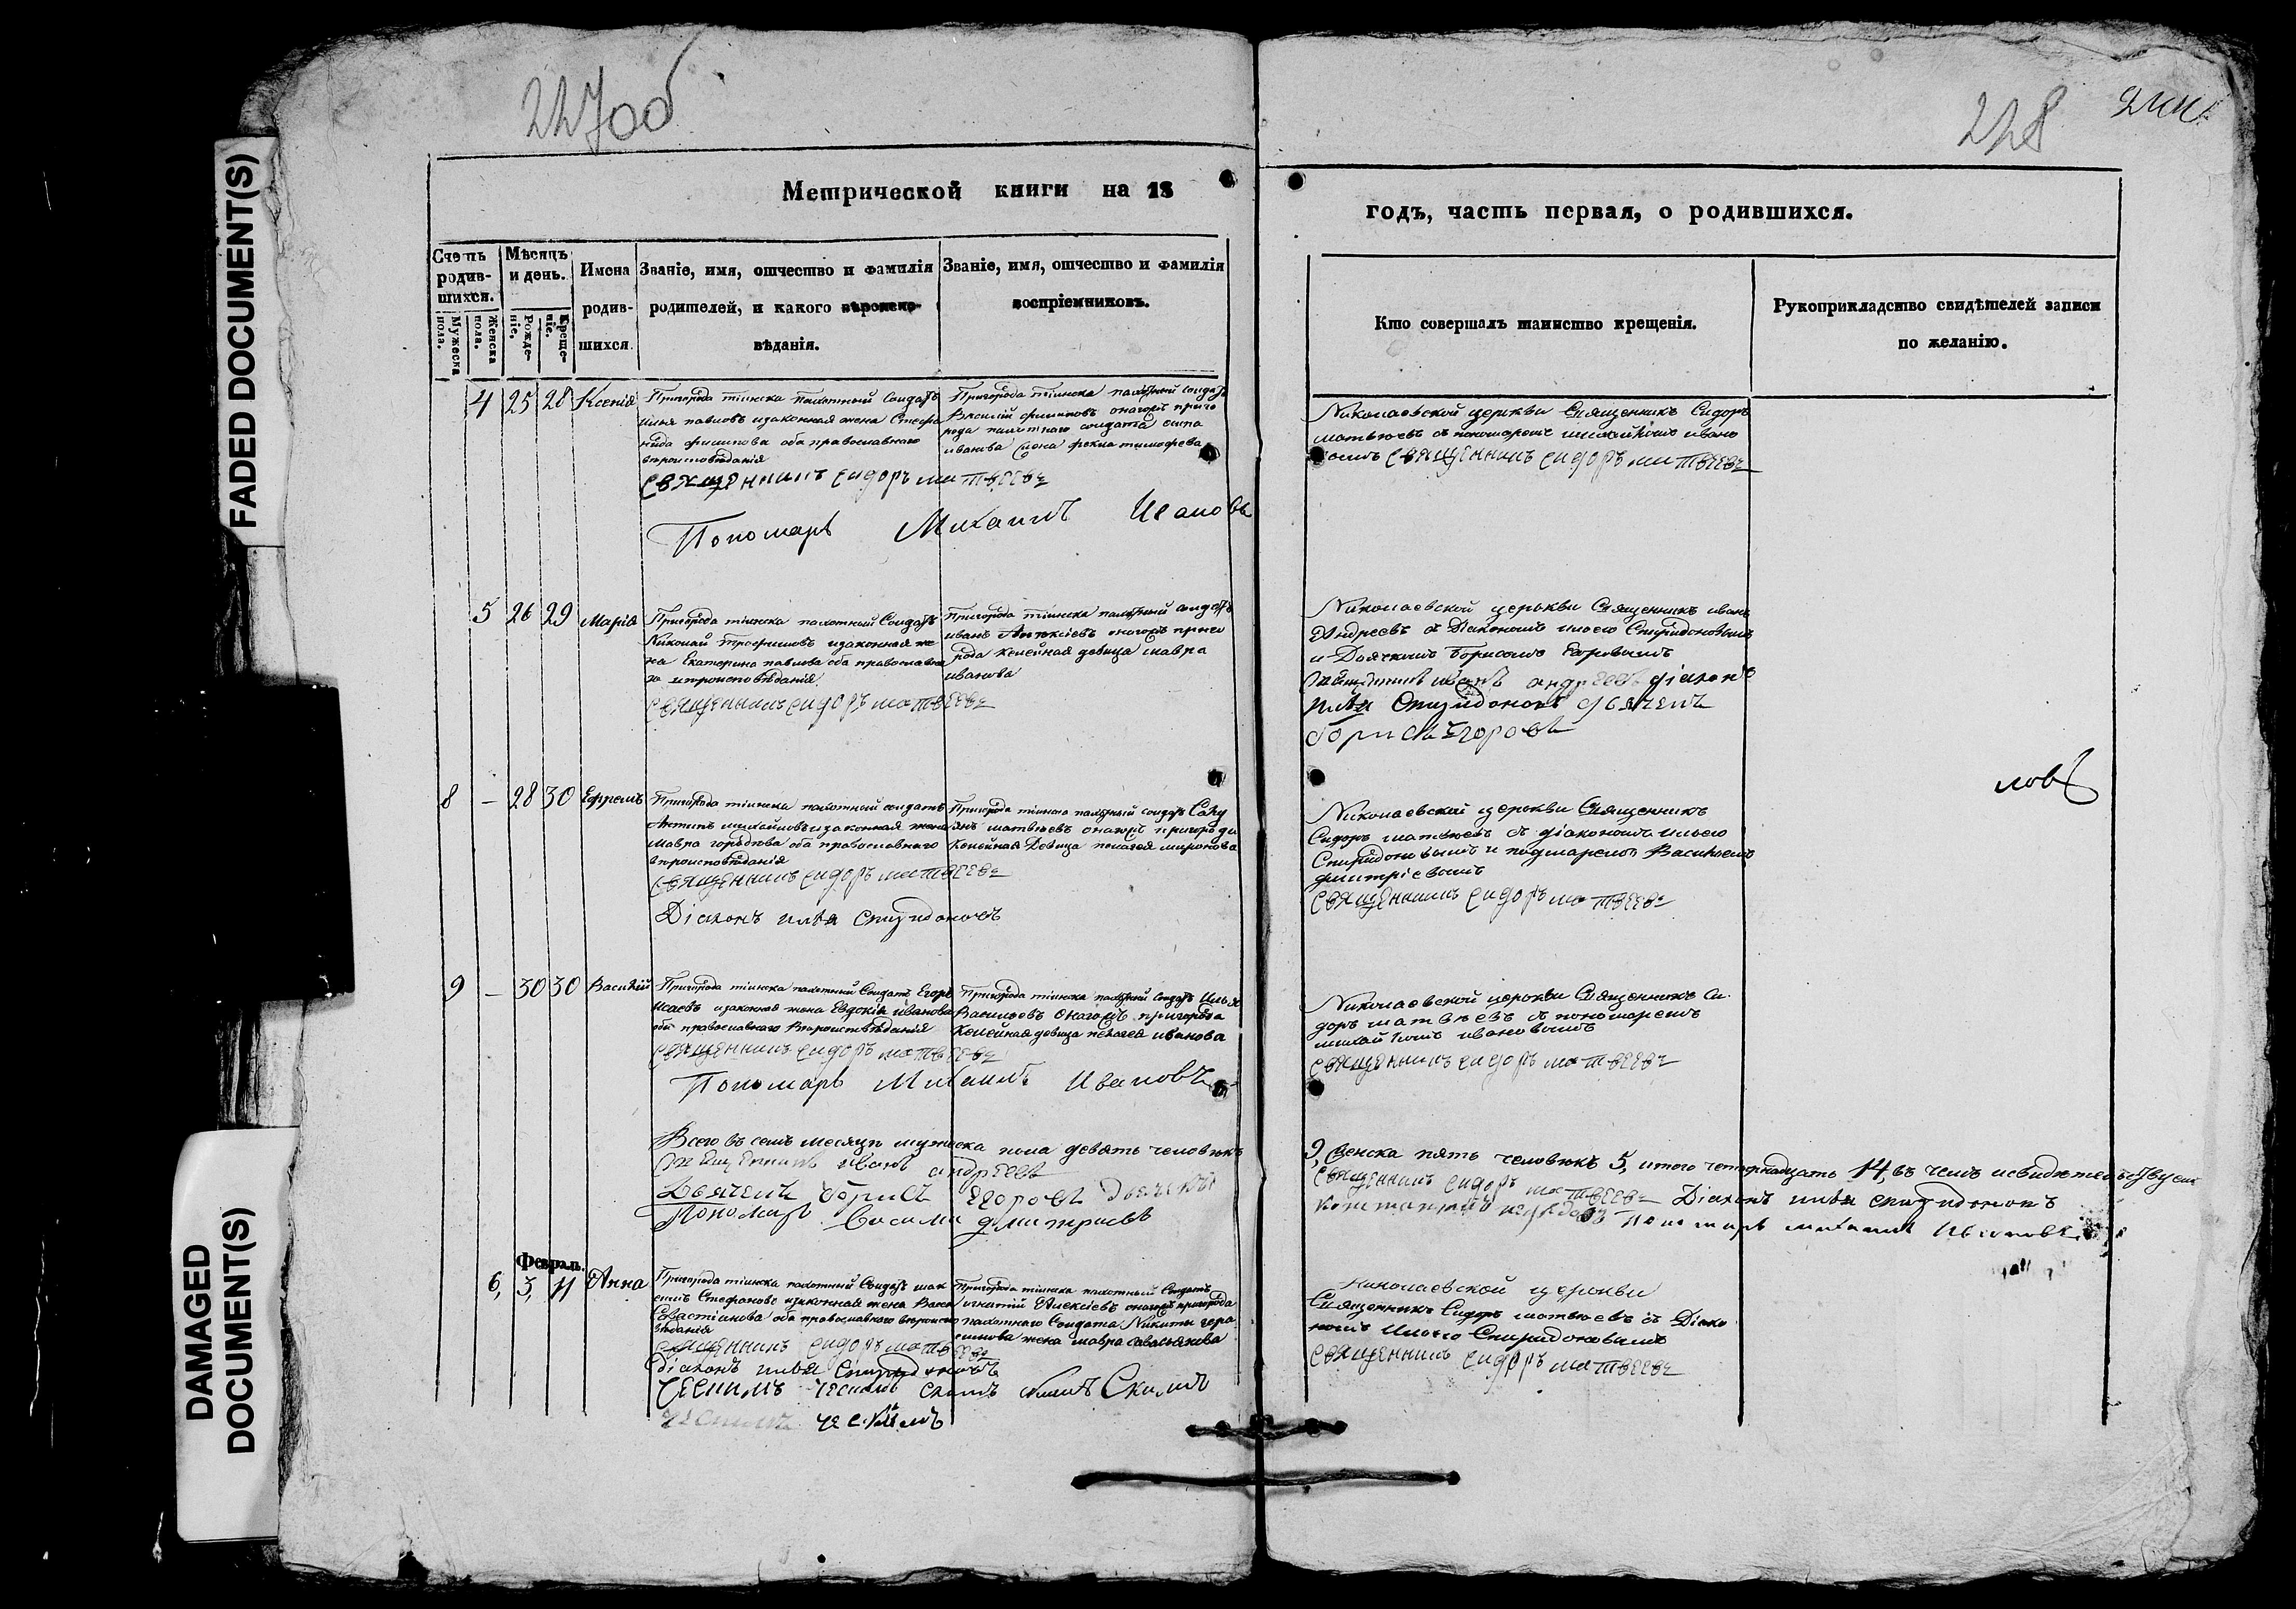 FADED DOCUMENT(S)
DAMAGED
DOCUMENT(S)
227об
228
Метрической книги на 18
годъ, часть первая, о родившихся.
Счетъ
родив-
шихся.
Мужеска
пола.
Женска
пола.
Мѣсяцъ
и день.
Рожде-
ніе.
Креще-
ніе.
Имена
родив-
шихся.
Званіе, имя, отчество и фамилія
родителей, и какого вѣроиспо-
вѣданія.
Званіе, имя, отчество и фамилія
воспріемниковъ.
Кто совершалъ таинство крещенія.
Рукоприкладство свидѣтелей записи
по желанію.
4 25 28 Ксенія
Пригорода тіинска пахотный Солдатъ
илья павловъ изаконная жена Стефа
нида филипова оба православнаго
вѣроисповѣданія
священникъ сидоръ матвеевъ
Пономарь Михаилъ Ивановъ
Пригорода тіинска пахотный солдатъ
Василій филиповъ онагожъ приго
рода пахотнаго солдата
иванова жена фекла тимофеева
Николаевской церкви Священникъ Сидоръ
матвѣевъ съ пономаремъ михайломъ ивано
вымъ священникъ сидоръ матвеевъ
5 26 29 Марія
Пригорода тіинска пахотный Солдатъ
Николай трофимовъ изаконная же
на Екатерина павлова оба православна
го вѣроисповѣданія
священникъ сидоръ матвеевъ
Пригорода тіинска пахотный солдатъ
иванъ Алексіевъ онагожъ приго
рода келейная девица мавра
иванова
Николаевской церькви Священникъ иванъ
Андреевъ съ Діакономъ ильею Спиридоновымъ
и Дьячкомъ Борисомъ Егоровымъ
Священникъ иванъ андреевъ діаконъ
илья Спиридоновъ дьячекъ
борисъ егоровъ
8 - 28 30 Ефремъ
Пригорода тіинска пахотный солдатъ
Антипъ михайловъ изаконная жена
мавра гордѣева оба православнаго
вѣроисповѣданія
священникъ сидоръ матвеевъ
Діаконъ илья спиридоновъ
Пригорода тіинска пахотный солдатъ
матвѣевъ онагожъ пригорода
келейная Девица пелагея миронова
Николаевской церькви Священникъ
Сидоръ матвѣевъ съ діакономъ ильею
Спиридоновымъ и пономаремъ Васильемъ
дмитріевымъ
священникъ сидоръ матвеевъ
9 - 30 30 Василій
Пригорода тіинска пахотный Солдатъ Егоръ
Исаевъ изаконная жена Евдокія иванова
оба православнаго Вѣроисповѣданія
священникъ сидоръ матвеевъ
Пономарь Михаилъ Ивановъ
Пригорода тіинска пахотный солдатъ Илья
Васильевъ онагожъ пригорода
келейная девица пелагея иванова
Николаевской церькви Священникъ Си
доръ матвѣевъ съ пономаремъ
михайломъ ивановымъ
священникъ сидоръ матвеевъ
Всего въ семъ месяцѣ мужеска пола девять человѣкъ
9, женска пять человѣкъ 5, итого четырнадцать 14, въ чемъ исвидѣтельствуемъ
Священникъ иванъ андреевъ
священникъ сидоръ матвеевъ Діаконъ илья спиридоновъ
Дьячекъ борисъ егоровъ Дьячекъ
Пономарь василий дмитриевъ
Пономарь михаилъ Ивановъ
Феврал.
6, 3, 11 Анна
Пригорода тіинска пахотный Солдатъ мак
симъ Стефановъ изаконная жена Васса
Севастіянова оба православнаго вѣроиспо
вѣданія
священникъ сидоръ матвеевъ
діаконъ илья Спиридоновъ
Пригорода тіинска пахотный Солдатъ
игнатій Алексіевъ онагожъ пригорода
пахотнаго Солдата Никиты гера
симова жена мавра савельянова
николаевской церькви
Священникъ Сидоръ матвѣевъ съ Діако
номъ Ильею Спиридоновымъ
священникъ сидоръ матвеевъ